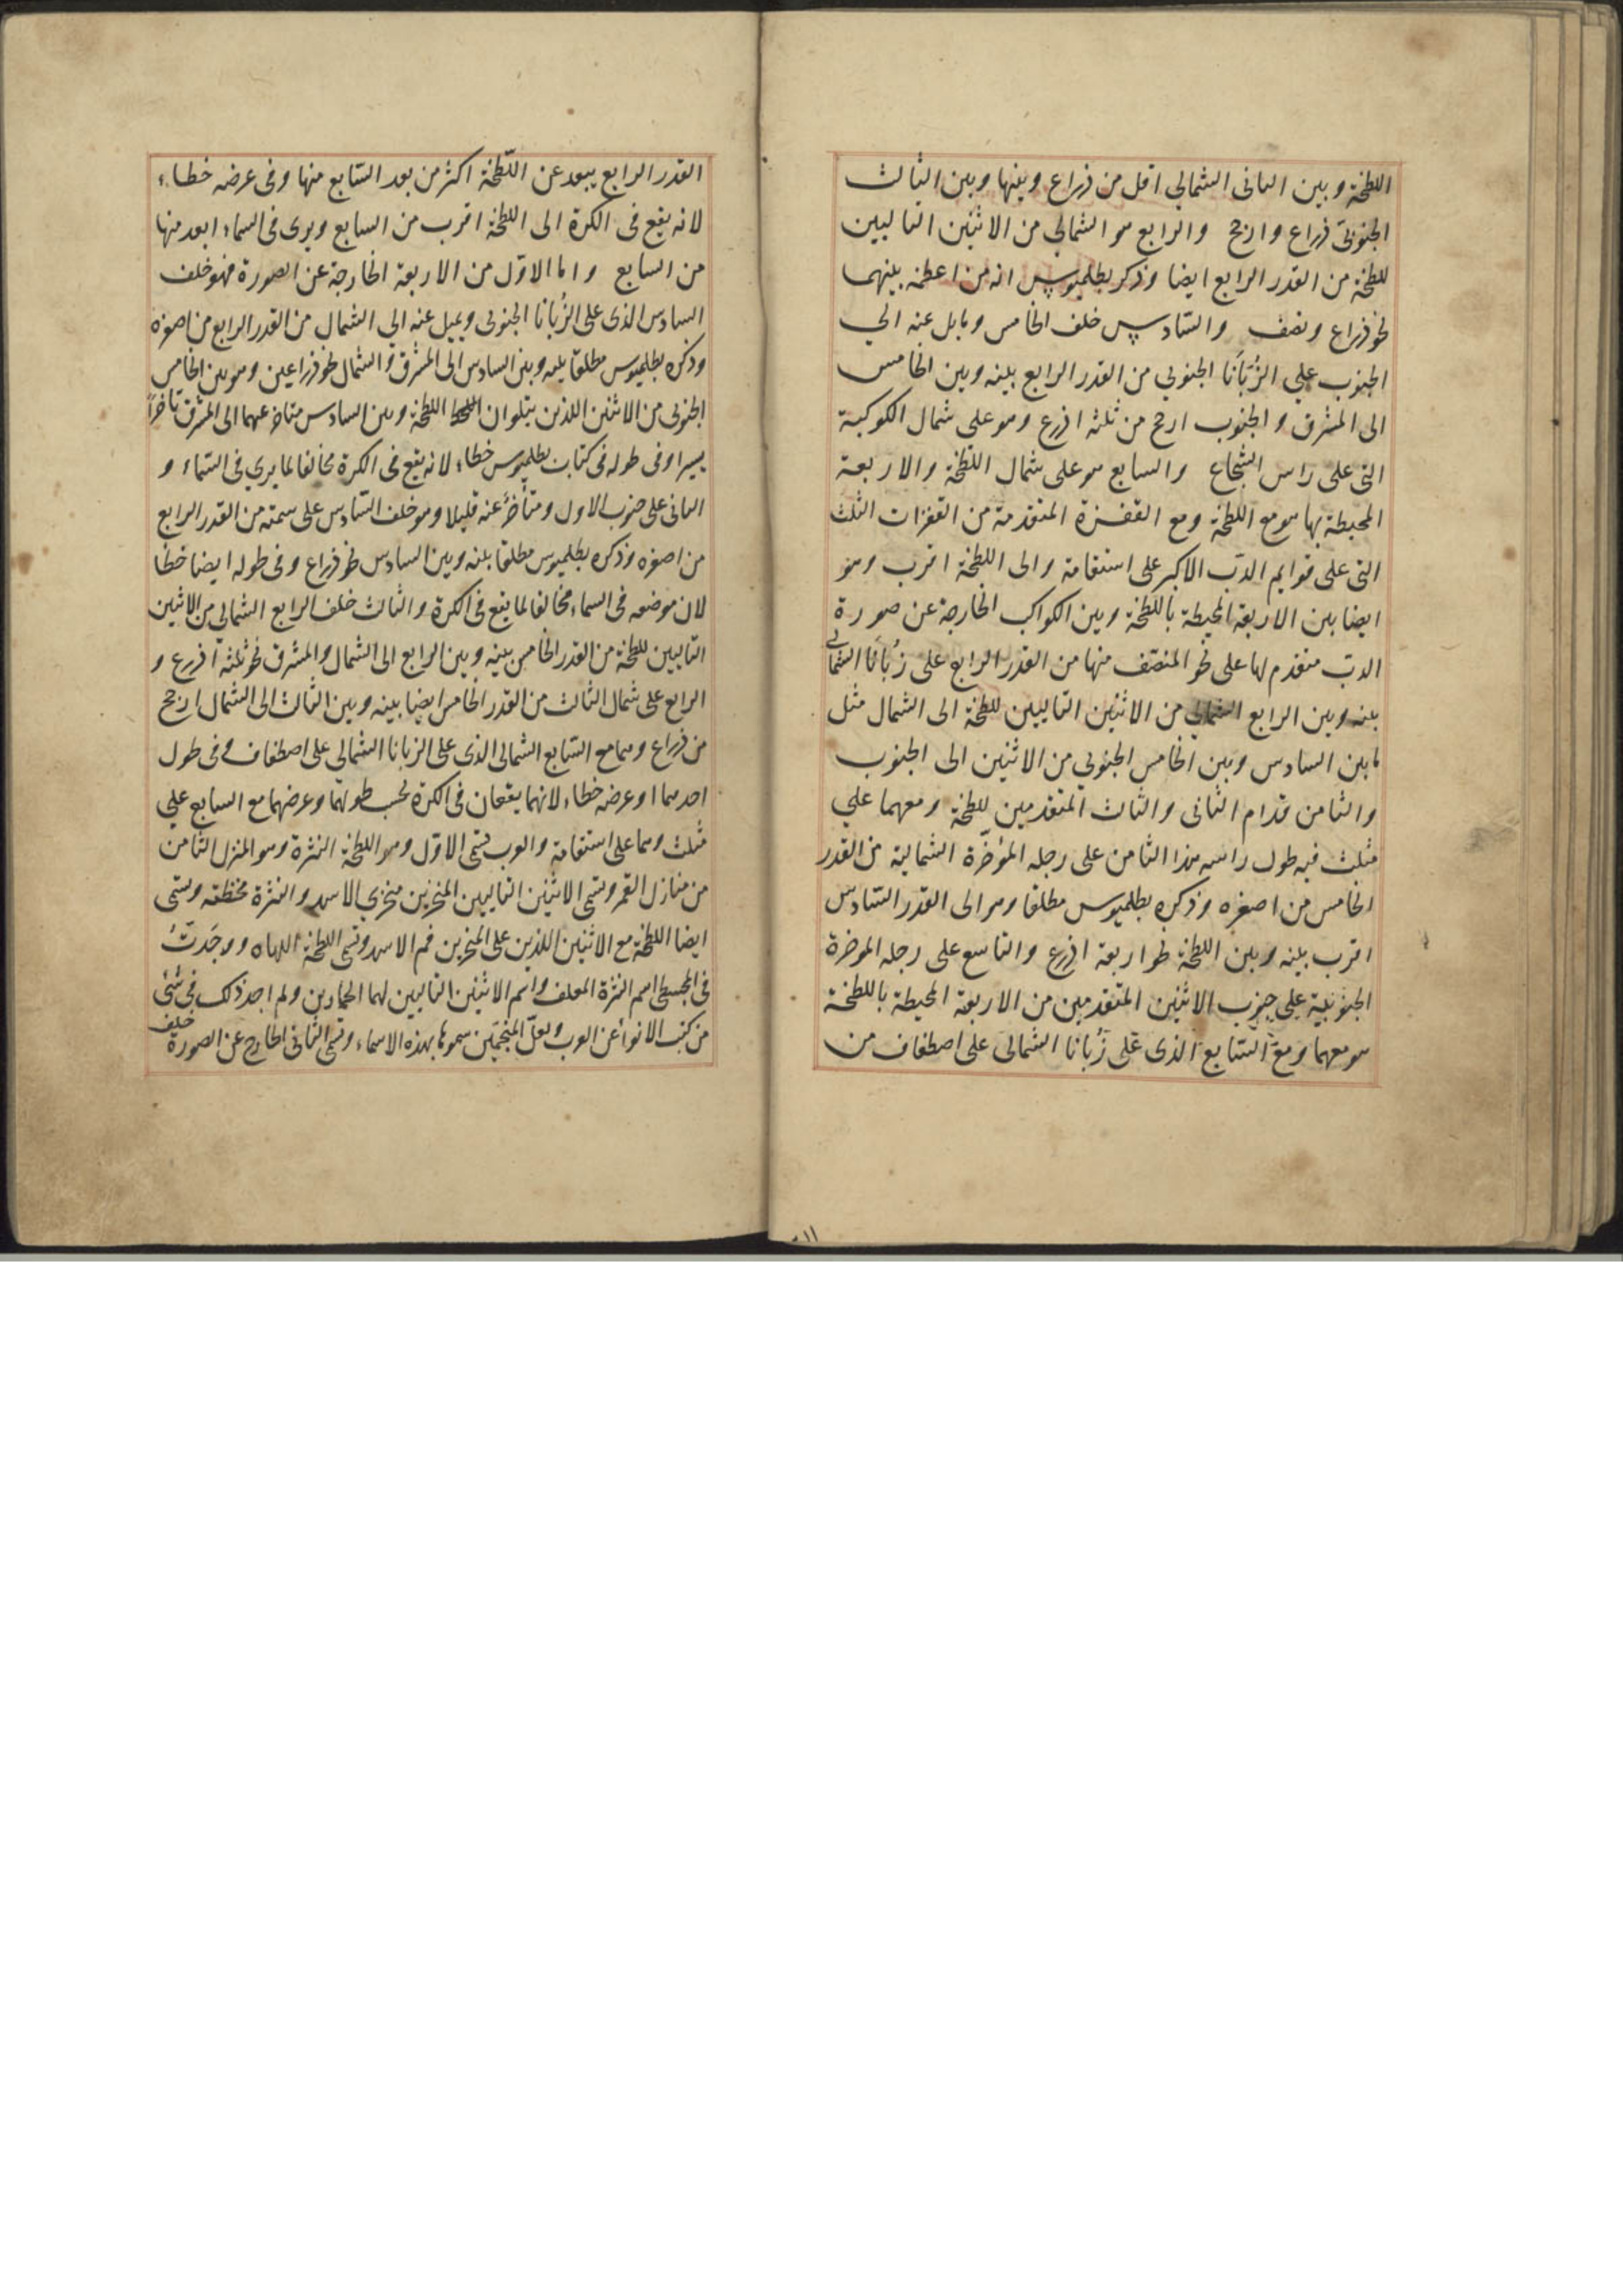 اللطخة وبين الثانى الشمالي اقل من ذراع وبينها وبين الثالث
الجنوبىّ ذراع وارجح والرابع هو الشمالي من الاثنين التاليين
للطخة من القدر الرابع ايضا وذكر بطلميوس انه من اعظمه بينهما
نحو ذراع ونصف والسّادس خلف الخامس ومايل عنه الي
الجنوب علي الزُبَانَا الجنوبي من القدر الرابع بينه وبين الخامس
الى المشرق والجنوب ارجح من ثلثة اذرع وهو على شمال الكوكبة
التى على راس الشجاع والسابع هو على شمال اللطخة والاربعة
المحيطة بها هو مع اللطخة ومع القفزة المتقدمة من القفزات الثلث
التى على قوايم الدبّ الاكبر على استقامة والى اللطخة اقرب وهو
ايضا بين الاربعة المحيطة باللطخة وبين الكواكب الخارجة عن صورة
الدبّ متقدم لها على نحو المنتصف منها من القدر الرابع على زُبَانَا الشمالي
بينه وبين الرابع الشمالي من الاثنين التاليين للطخة الى الشمال مثل
ما بين السادس وبين الخامس الجنوبي من الاثنين الى الجنوب
والثامن قدام الثانى والثالث المتقدمين للطخة ومعهما علي
مثلث فيه طول راسه هذا الثامن على رجله المؤخّرة الشمالية من القدر
الخامس من اصغره وذكره بطلميوس مطلقا وهو الى القدر السّادس
اقرب بينه وبين اللطخة نحو اربعة اذرع والتاسع على رجله المؤخرة
الجنوبية على جنوب الاثنين المتقدمين من الاربعة المحيطة باللطخة
هو معهما ومع السّابع الذى على زُبانا الشمالى على اصطفاف من
القدر الرابع يبعد عن اللّطخة اكثر من بعد السّابع منها وفى عرضه خطاء
لانه يقع فى الكرة الى اللطخة اقرب من السابع ويرى فى السماء ابعد منها
من السابع واما الاوّل من الاربعة الخارجة عن الصورة فهو خلف
السادس الذى على الزُبانا الجنوبى ويميل عنه الي الشمال من القدر الرابع من اصغره
وذكره بطلميوس مطلقا بينه وبين السادس الى المشرق والشمال نحو ذراعين وهو بين الخامس
الجنوبى من الاثنين اللذين يتلوان اللطخة وبين السادس متاخر عنهما الى المشرق تاخرا
يسيرا وفى طوله فى كتاب بطلميوس خطاء لانه يقع فى الكرة مخالفا لما يرى فى السّماء و
الثانى على جنوب الاول ومتأخر عنه قليلا وهو خلف السّادس على سمته من القدر الرابع
من اصغره وذكره بطلميوس مطلقا بينه وبين السادس نحو ذراع وفى طوله ايضا خطا
لان موضعه فى السماء مخالفا لما يقع فى الكرة والثالث خلف الرابع الشمالى من الاثنين
التاليين للطخة من القدر الخامس بينه وبين الرابع الى الشمال والمشرق نحو ثلثة اذرع و
الرابع على شمال الثالث من القدر الخامس ايضا بينه وبين الثالث الى الشمال ارجح
من ذراع وهما مع السّابع الشمالى الذى على الزبانا الشمالى على اصطفاف وفى طول
احدهما او عرضه خطاء لانهما يقعان فى الكرة بحسب طولهما وعرضهما مع السابع علي
مثلث وهما على استقامة والعرب تسمّى الاوّل وهو اللطخة النثرة وهو المنزل الثامن
من منازل القمر وتسمّى الاثنين التاليين المنخرين منخرى الاسد والنثرة مخطته وتسمّى
ايضا اللطخة مع الاثنين اللذين على المنخرين فم الاسد وتسمّى اللطخة اللهاه ووجَدتُ
فى المجسطى اسم النثرة المعلف واسم الاثنين التاليين لهما الحمارين ولم اجد ذلك فى شئى
من كتب الانواء عن العرب ولعلّ المنجّمين سموها بهذه الاسماء وتسمّى الثانى الخارج عن الصورة
خلف